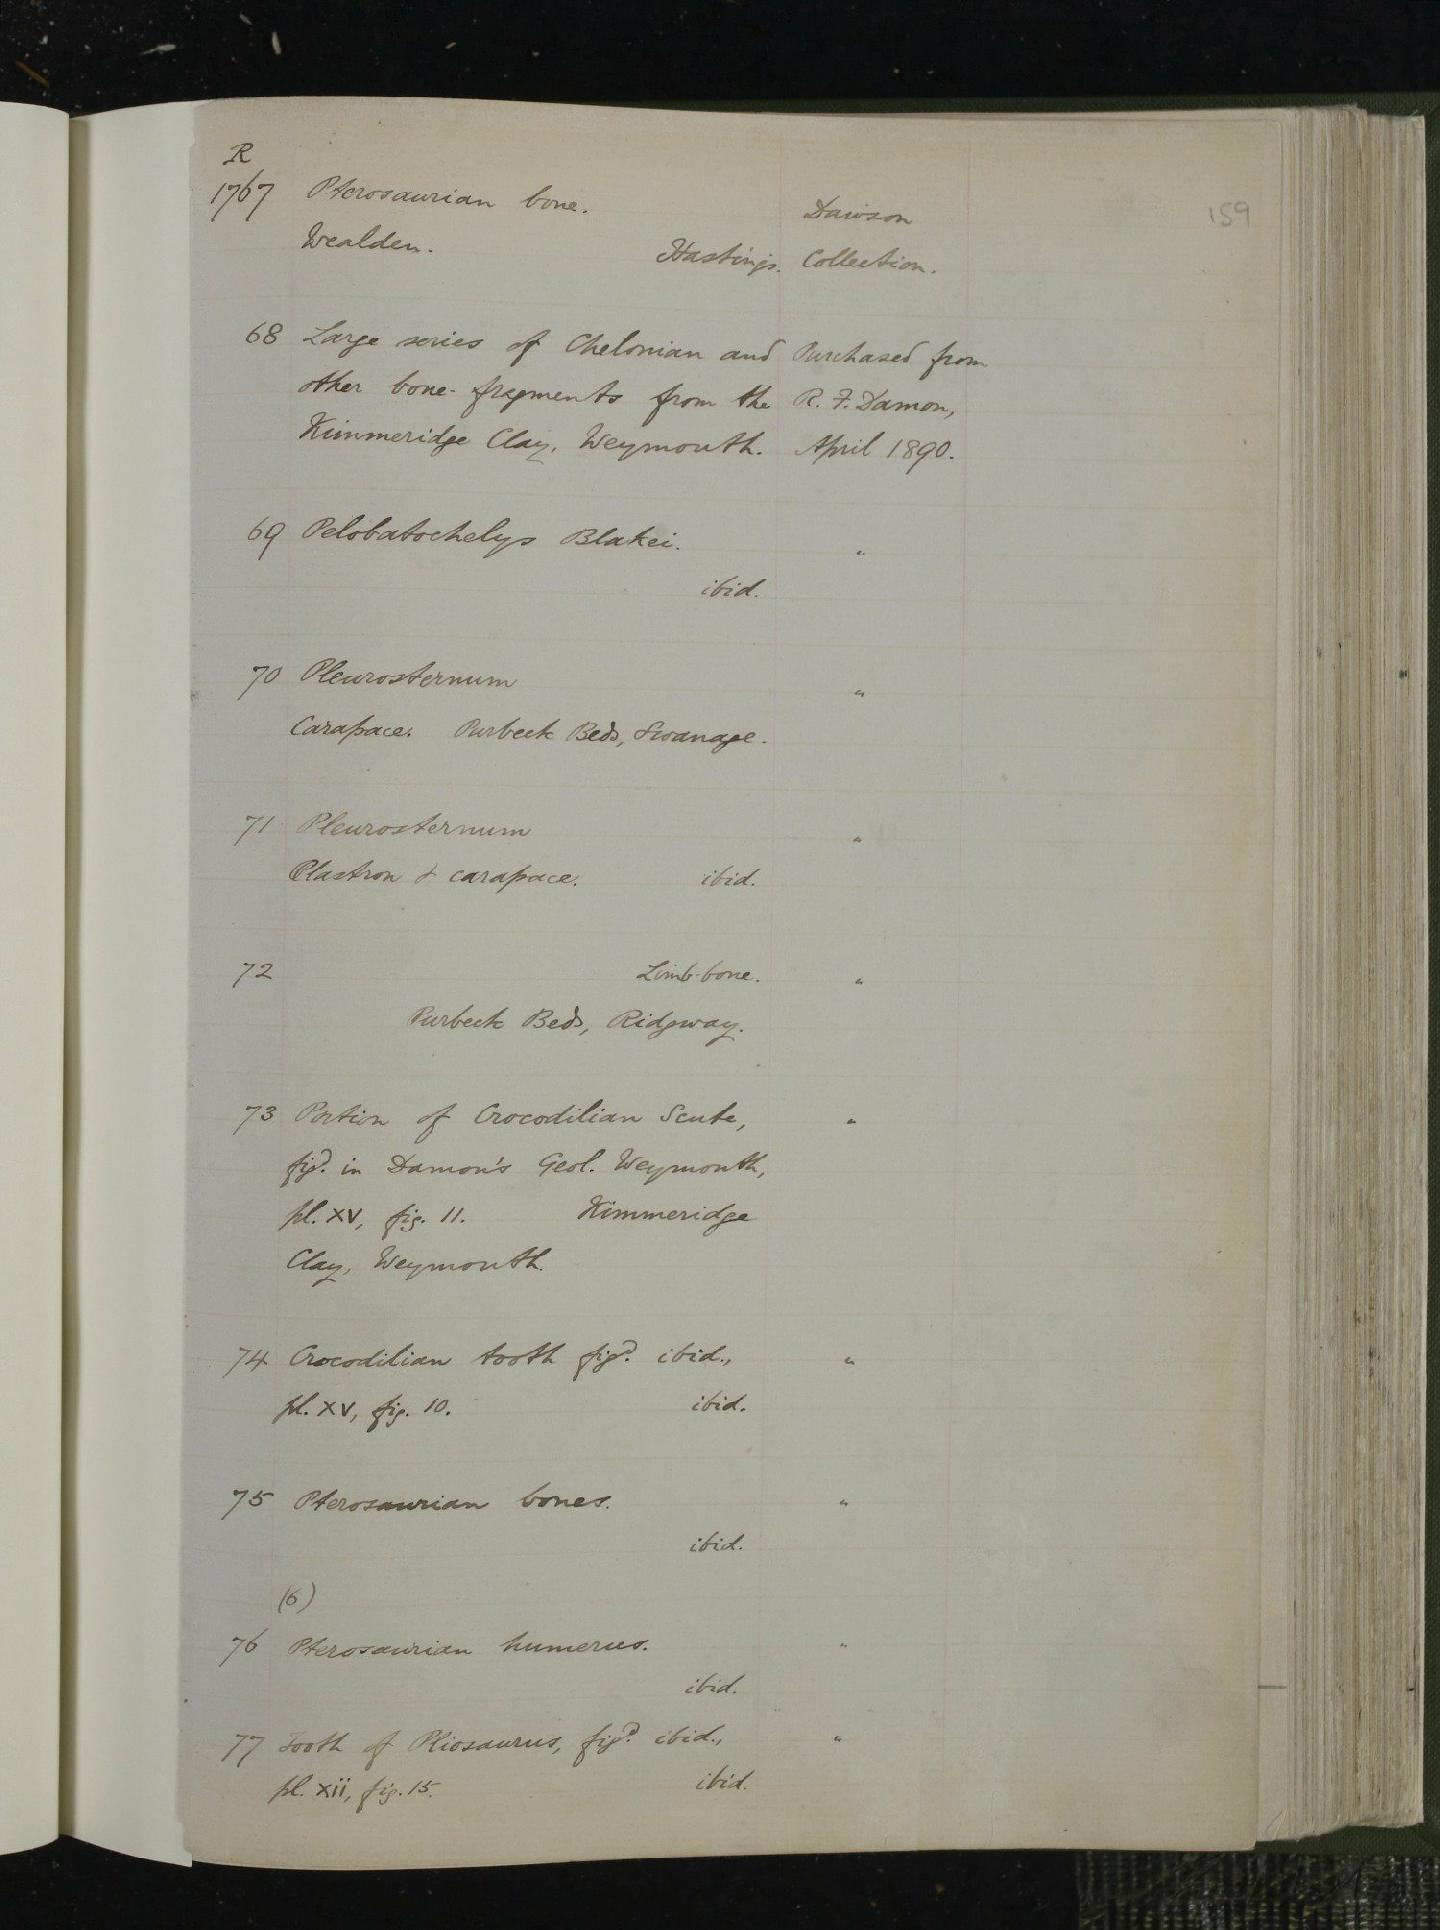 159
R
1767 Pterosaurian bone. Dawson
Wealden. Hastings. Collection.
68 Large series of Chelonian and Purchased from
other bone-fragments from the R. F. Damon,
Kimmeridge Clay, Weymouth. April 1890.
69 Pelobatochelys Blakei. "
ibid.
70 Pleurosternum "
Carapace. Purbeck Beds, Swanage.
71 Pleurosternum "
Plastron & carapace. ibid.
72 Limb-bone. "
Purbeck Beds, Ridgway.
73 Portion of Crocodilian Scute, "
figd. in Damon's Geol. Weymouth,
pl. XV, fig. 11. Kimmeridge
Clay, Weymouth.
74 Crocodilian tooth figd. ibid., "
pl. XV, fig. 10. ibid.
75 Pterosaurian bones. "
ibid.
(6)
76 Pterosaurian humerus. "
ibid.
77 Tooth of Pliosaurus, figd. ibid., "
pl. xii, fig. 15. ibid.